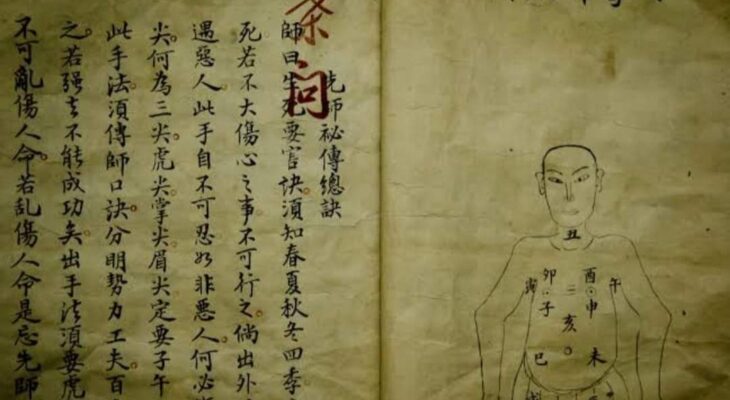 丑
酉
卯
午
寅
申
三
子
亥
未
巳
先師祕傳總訣
問
師曰生死要官訣須知春夏秋冬四季
死若不大傷心之事不可行之倘出外
遇惡人此手自不可忍如非惡人何必
尖何為三尖虎尖掌尖眉尖定要子午
此手法須傳師口訣分明勢力工夫百
之若强去不能成功矣出手法須要虎
不可亂傷人命若乱傷人命是忘先師